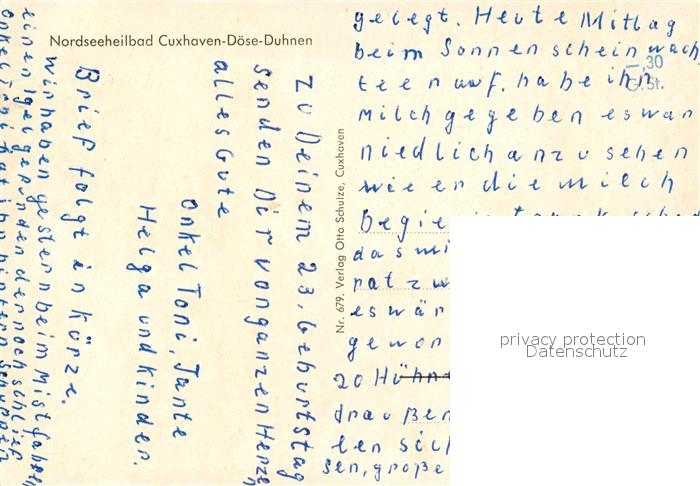 Nordseeheilbad Cuxhaven-Döse-Duhnen
Zu Deinem 23. Geburtstag
senden Dir von ganzen Herzen
alles Gute
Onkel Toni, Tante
Helga und Kinder.
Brief folgt in Kürze.
wir haben gestern beim Mist fahren
einen Igel gefunden der noch schlief
Onkel Toni hat ihn hintern Schuppen
gelegt. Heute Mittag
beim Sonnenschein wach
teen
auf. habe ihn
Milch gegeben es war
niedlich anzusehen
wie en die Milch
Begie
das mi
rat zw
es wär
gewon
20 Hühne
draußen
len sich
sen, große
-,30
G.St.
Nr. 679. Verlag Otto Schulze, Cuxhaven
privacy protection
Datenschutz